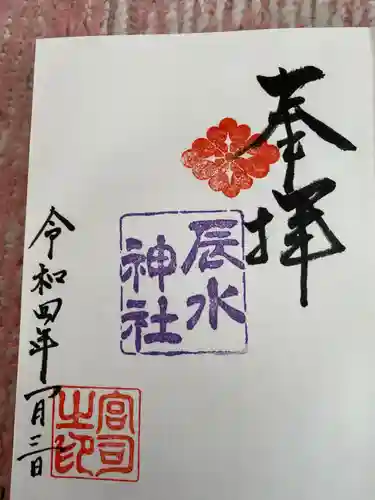 奉拝
辰水
神社
令和四年一月三日
宮司
之印